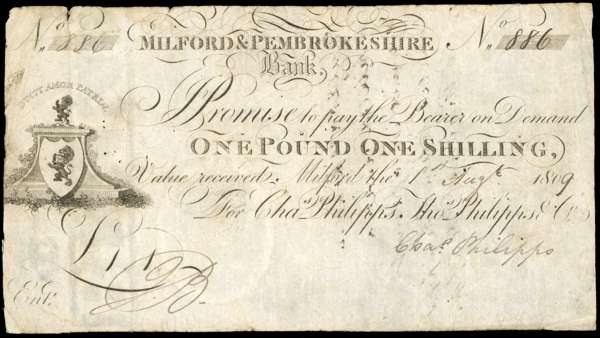 No. 886 MILFORD & PEMBROKESHIRE No. 886
Bank,
DUCIT AMOR PATRIÆ
I Promise to pay the Bearer on Demand
ONE POUND ONE SHILLING,
Value received. Milford the 1st Augt. 1809
For Chas. Philipps, Thos. Philipps & Co.
£1,,1
Chas. Philipps
Ent.